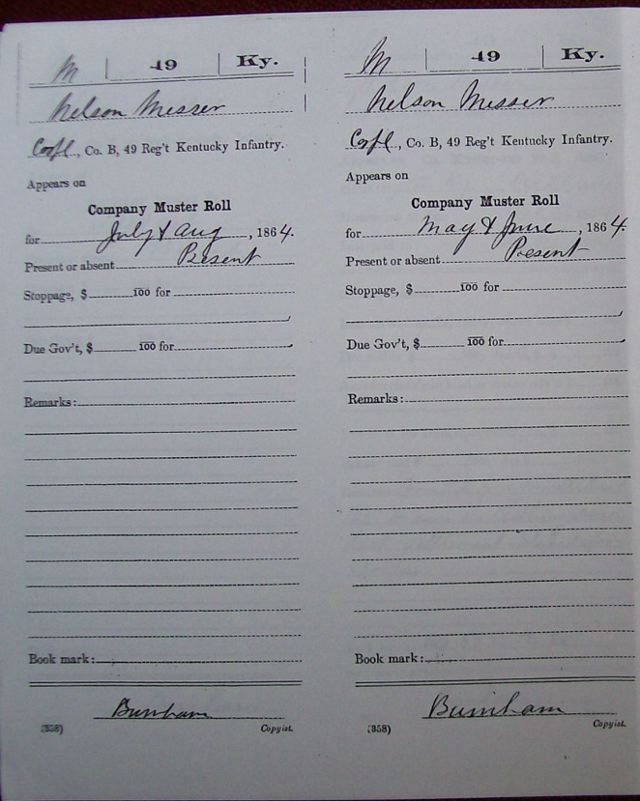 M | 49 | Ky.
Nelson Messer
Corpl., Co. B, 49 Reg't Kentucky Infantry.
Appears on
Company Muster Roll
for July & Aug, 1864.
Present or absent Present
Stoppage, $ 100 for
Due Gov't, $ 100 for
Remarks:
Book mark:
Burnham
(358) Copyist.
M | 49 | Ky.
Nelson Messer
Corpl., Co. B, 49 Reg't Kentucky Infantry.
Appears on
Company Muster Roll
for May & June, 1864.
Present or absent Present
Stoppage, $ 100 for
Due Gov't, $ 100 for
Remarks:
Book mark:
Burnham
(358) Copyist.